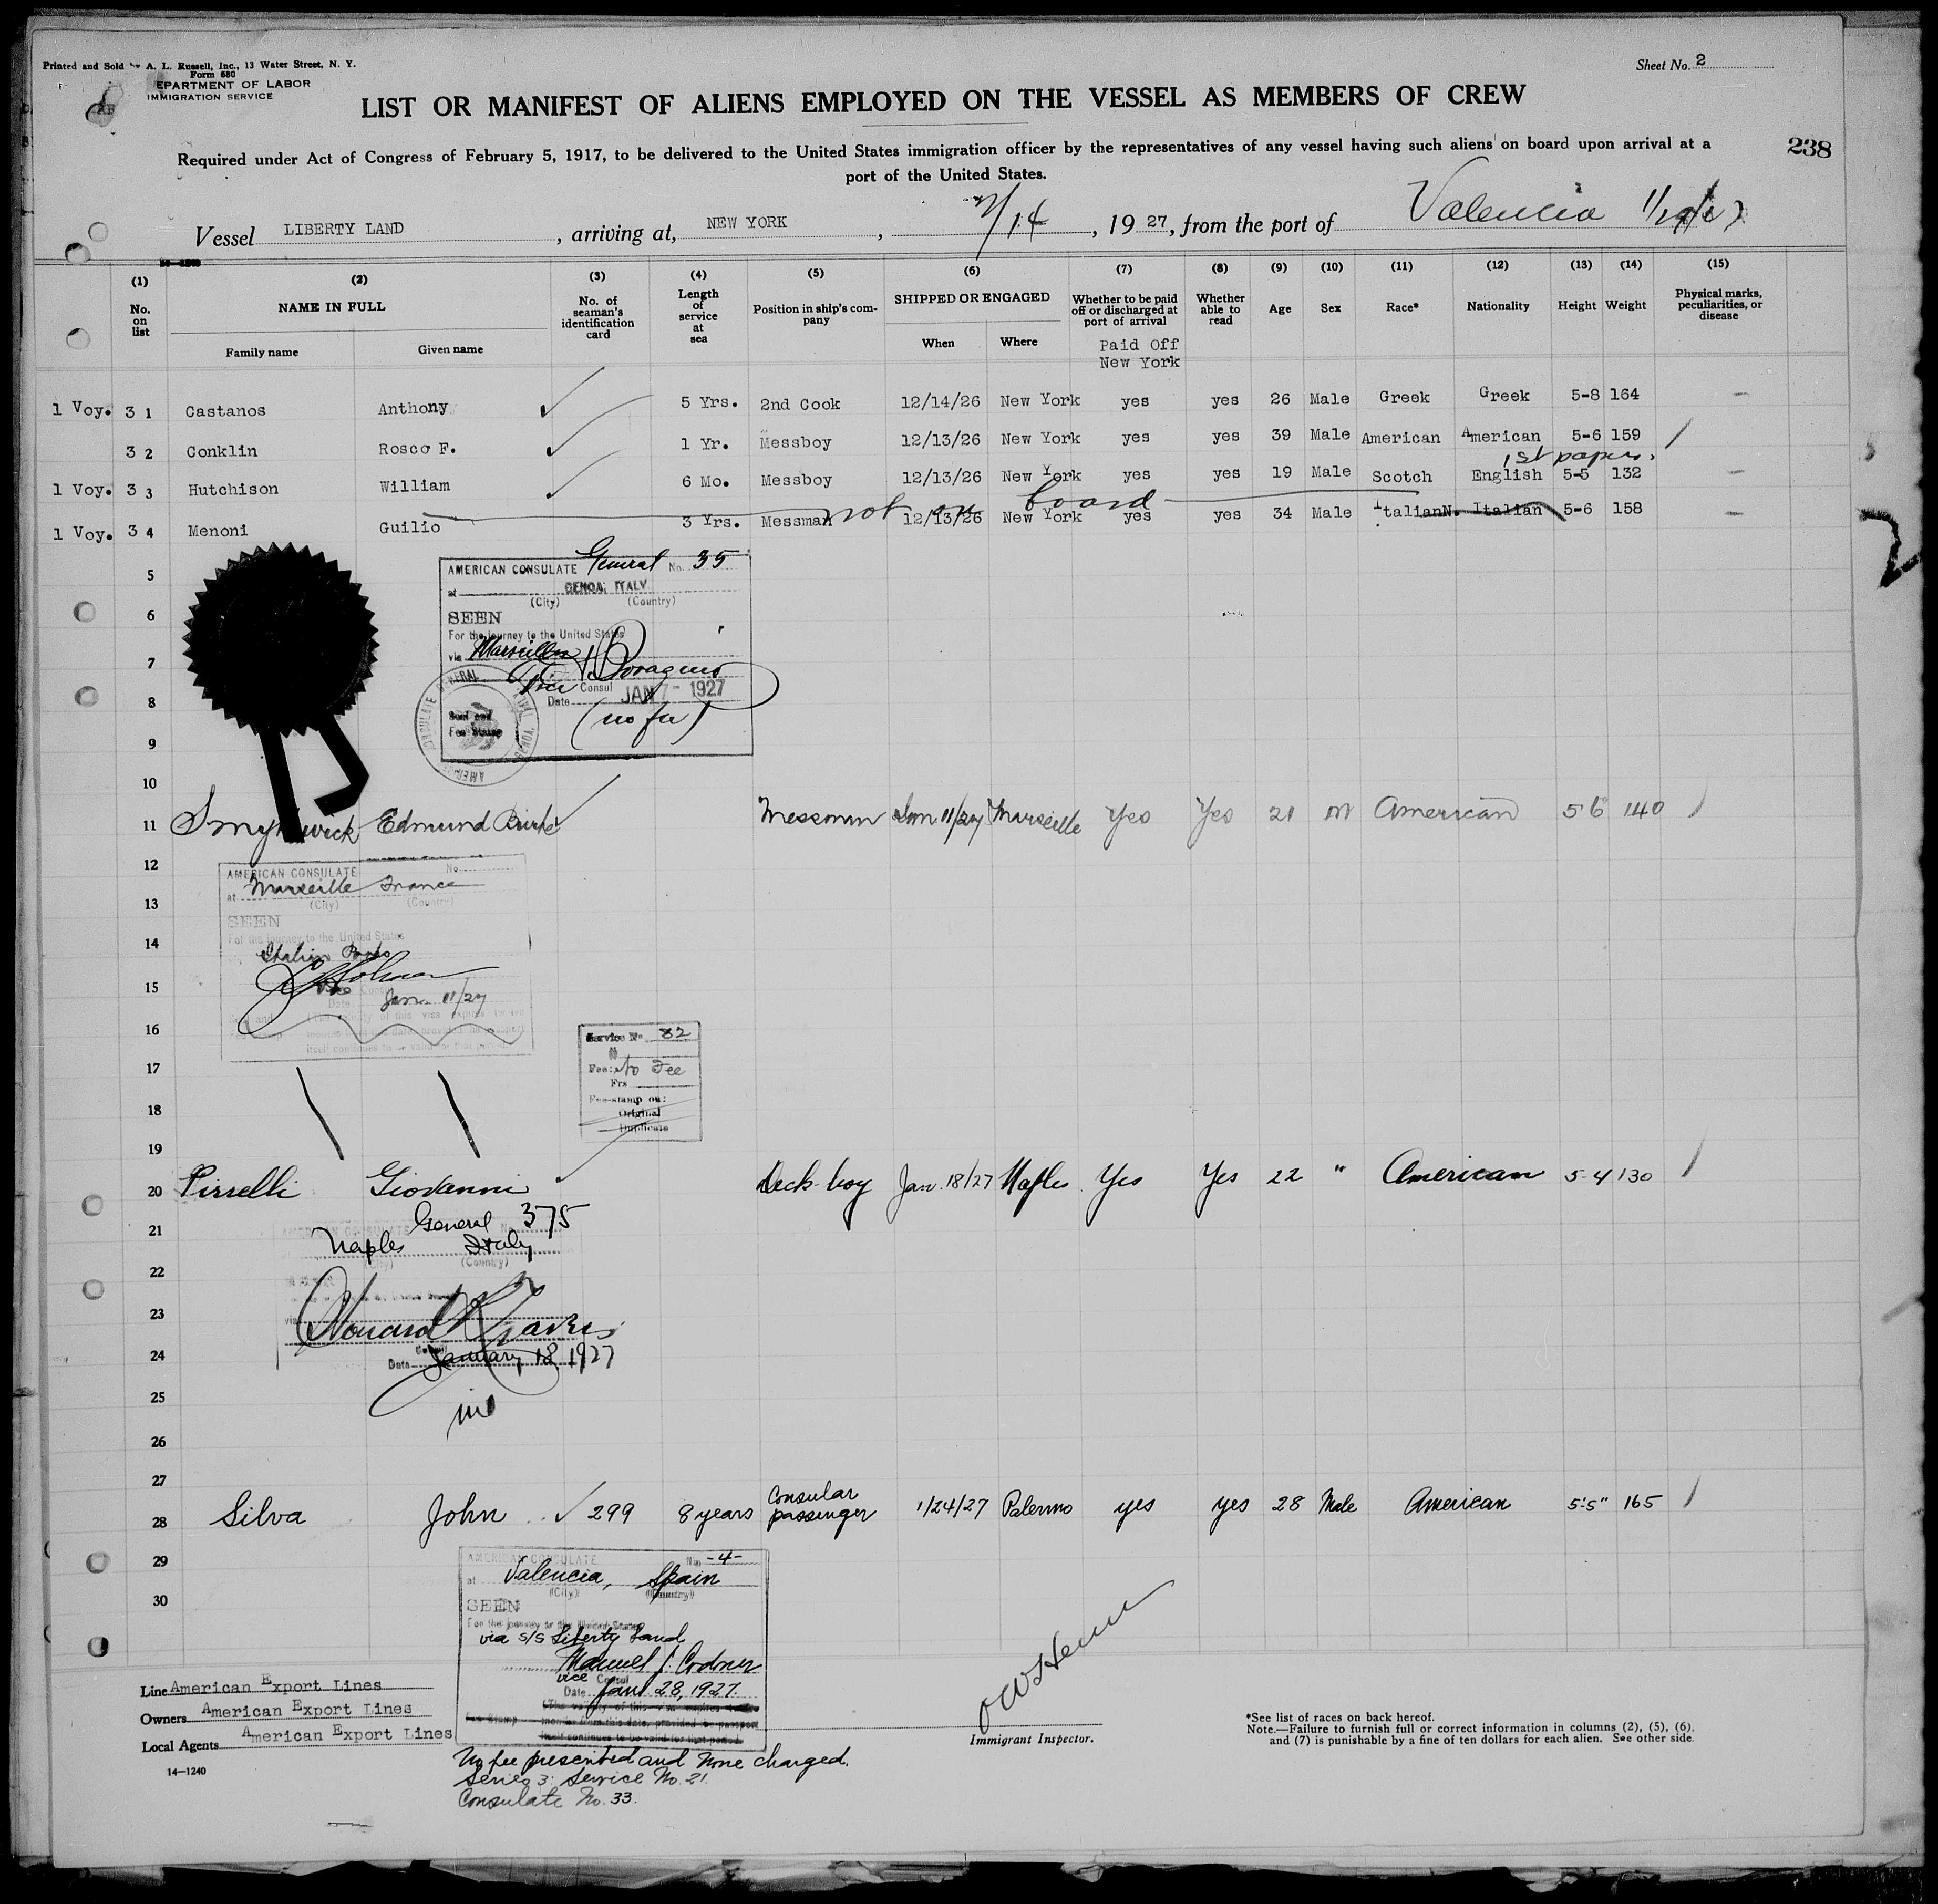 Printed and Sold by A. L. Russell, Inc., 13 Water Street, N. Y.
Form 680
EPARTMENT OF LABOR
IMMIGRATION SERVICE
Sheet No. 2
LIST OR MANIFEST OF ALIENS EMPLOYED ON THE VESSEL AS MEMBERS OF CREW
238
Required under Act of Congress of February 5, 1917, to be delivered to the United States immigration officer by the representatives of any vessel having such aliens on board upon arrival at a
port of the United States.
Vessel LIBERTY LAND, arriving at, NEW YORK, 2/14, 1927, from the port of Valencia
(1) (2) (3) (4) (5) (6) (7) (8) (9) (10) (11) (12) (13) (14) (15)
No. on list NAME IN FULL Family name Given name No. of seaman's identification card Length of service at sea Position in ship's company SHIPPED OR ENGAGED When Where Whether to be paid off or discharged at port of arrival Whether able to read Age Sex Race* Nationality Height Weight Physical marks, peculiarities, or disease
Paid Off
New York
1 Voy. 3 1 Castanos Anthony 5 Yrs. 2nd Cook 12/14/26 New York yes yes 26 Male Greek Greek 5-8 164 —
3 2 Conklin Rosco F. 1 Yr. Messboy 12/13/26 New York yes yes 39 Male American American 5-6 159 /
1st papers.
1 Voy. 3 3 Hutchison William 6 Mo. Messboy 12/13/26 New York yes yes 19 Male Scotch English 5-5 132 —
not on board
1 Voy. 3 4 Menoni Guilio 3 Yrs. Messman 12/13/26 New York yes yes 34 Male ItalianN. Italian 5-6 158 —
5
AMERICAN CONSULATE General No. 35
at GENOA, ITALY
(City) (Country)
6
SEEN
For the journey to the United States
7
via Marseilles
Vice Consul
8
Date JAN 7 - 1927
Seal and
Fee Stamp
(no fee)
9
10
11 Smythwick Edmund Burke Messman Jan 11/27 Marseille Yes Yes 21 M American 5 6 140 /
12
AMERICAN CONSULATE No.
at Marseille France
(City) (Country)
13
SEEN
14
For the journey to the United States
Italian Ports
15
Jan. 11/27
16
Service No 82
17
Fee: No Fee
Frs
Fee-stamp on:
18
Original
Duplicate
19
20 Pirrelli Giovanni Deck-boy Jan. 18/27 Naples Yes Yes 22 " American 5-4 130 /
General 375
21
Naples Italy
(City) (Country)
22
23
via
24
Date January 18 1927
25
26
27
28 Silva John 299 8 years Consular passenger 1/24/27 Palermo yes yes 28 Male American 5'5" 165 /
29
AMERICAN CONSULATE No -4-
at Valencia, Spain
(City) (Country)
30
SEEN
For the journey to the United States
via S/S Liberty Land
Manuel J. Codoner
vice Consul
Date Jan 28, 1927.
Line American Export Lines
Owners American Export Lines
Local Agents American Export Lines
14—1240
No fee presented and none charged.
Series 3: Service No. 21.
Consulate No. 33.
Immigrant Inspector.
*See list of races on back hereof.
Note.—Failure to furnish full or correct information in columns (2), (5), (6),
and (7) is punishable by a fine of ten dollars for each alien. See other side.